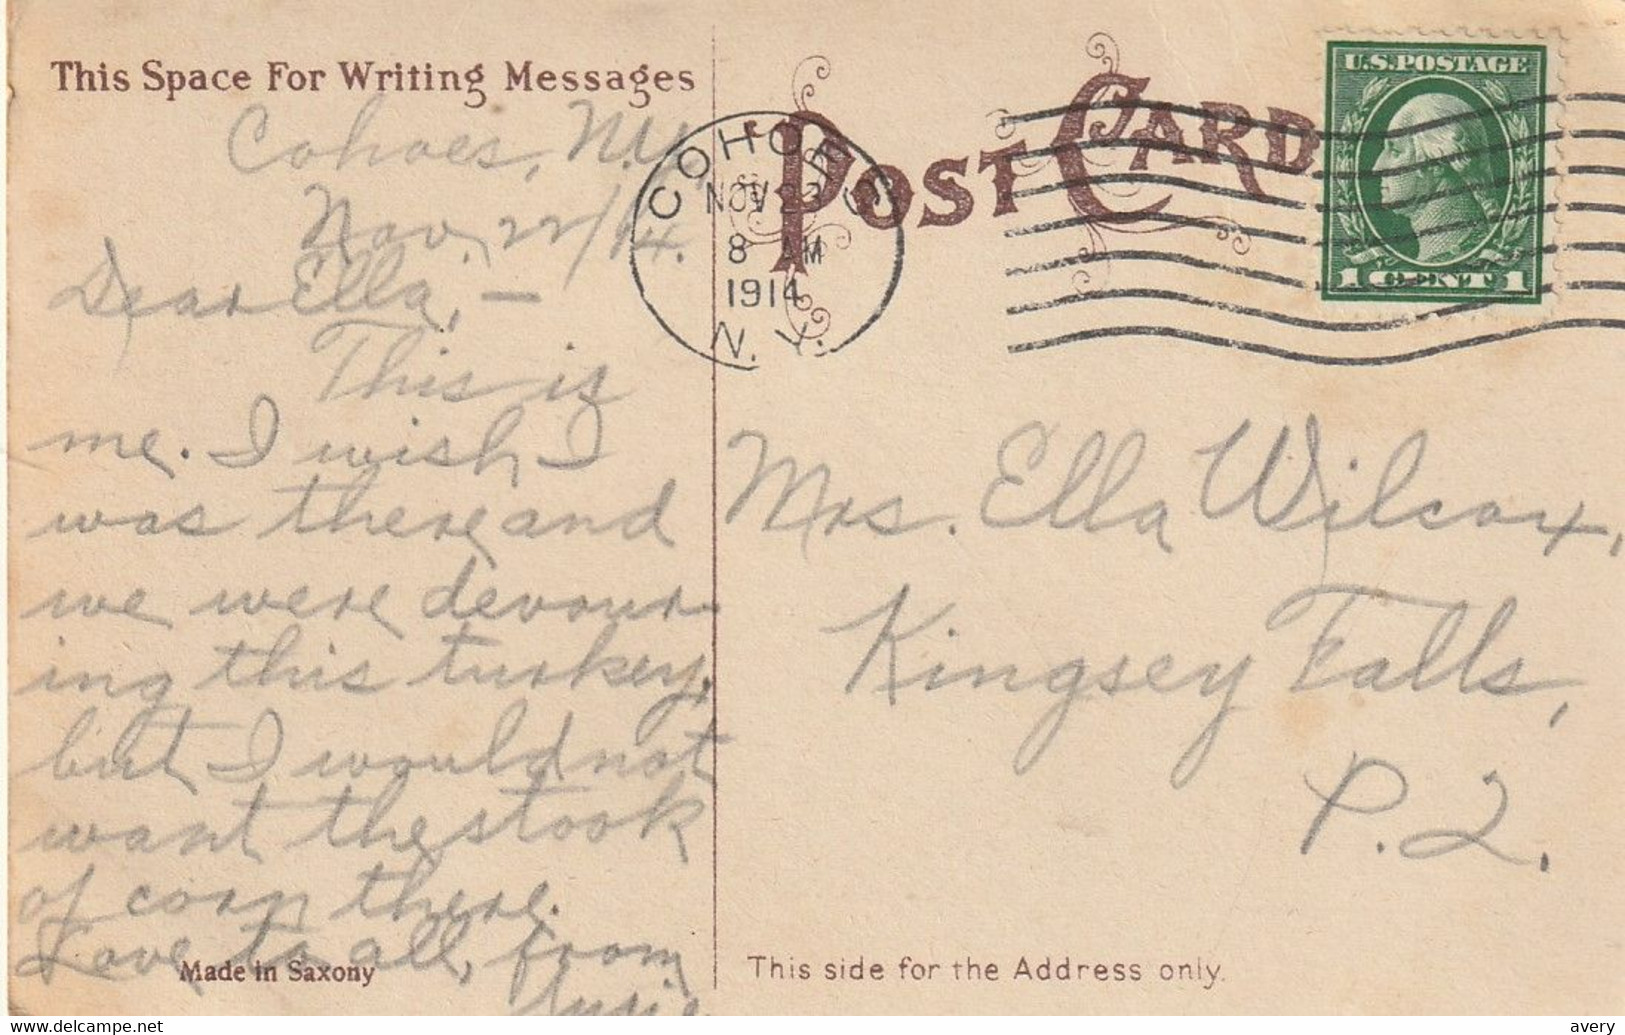 This Space For Writing Messages
Cohoes, N.Y.
Nov. 22/14.
Dear Ella, —
This is
me. I wish I
was there and
we were devour-
ing this turkey,
but I would not
want the stook
of corn there.
Love to all, from
Susie
Made in Saxony
POST CARD
COHOES
NOV 23
8 AM
1914
N. Y.
U.S. POSTAGE
1 CENT 1
Mrs. Ella Wilcox,
Kingsey Falls,
P. Q.
This side for the Address only.
www.delcampe.net
avery